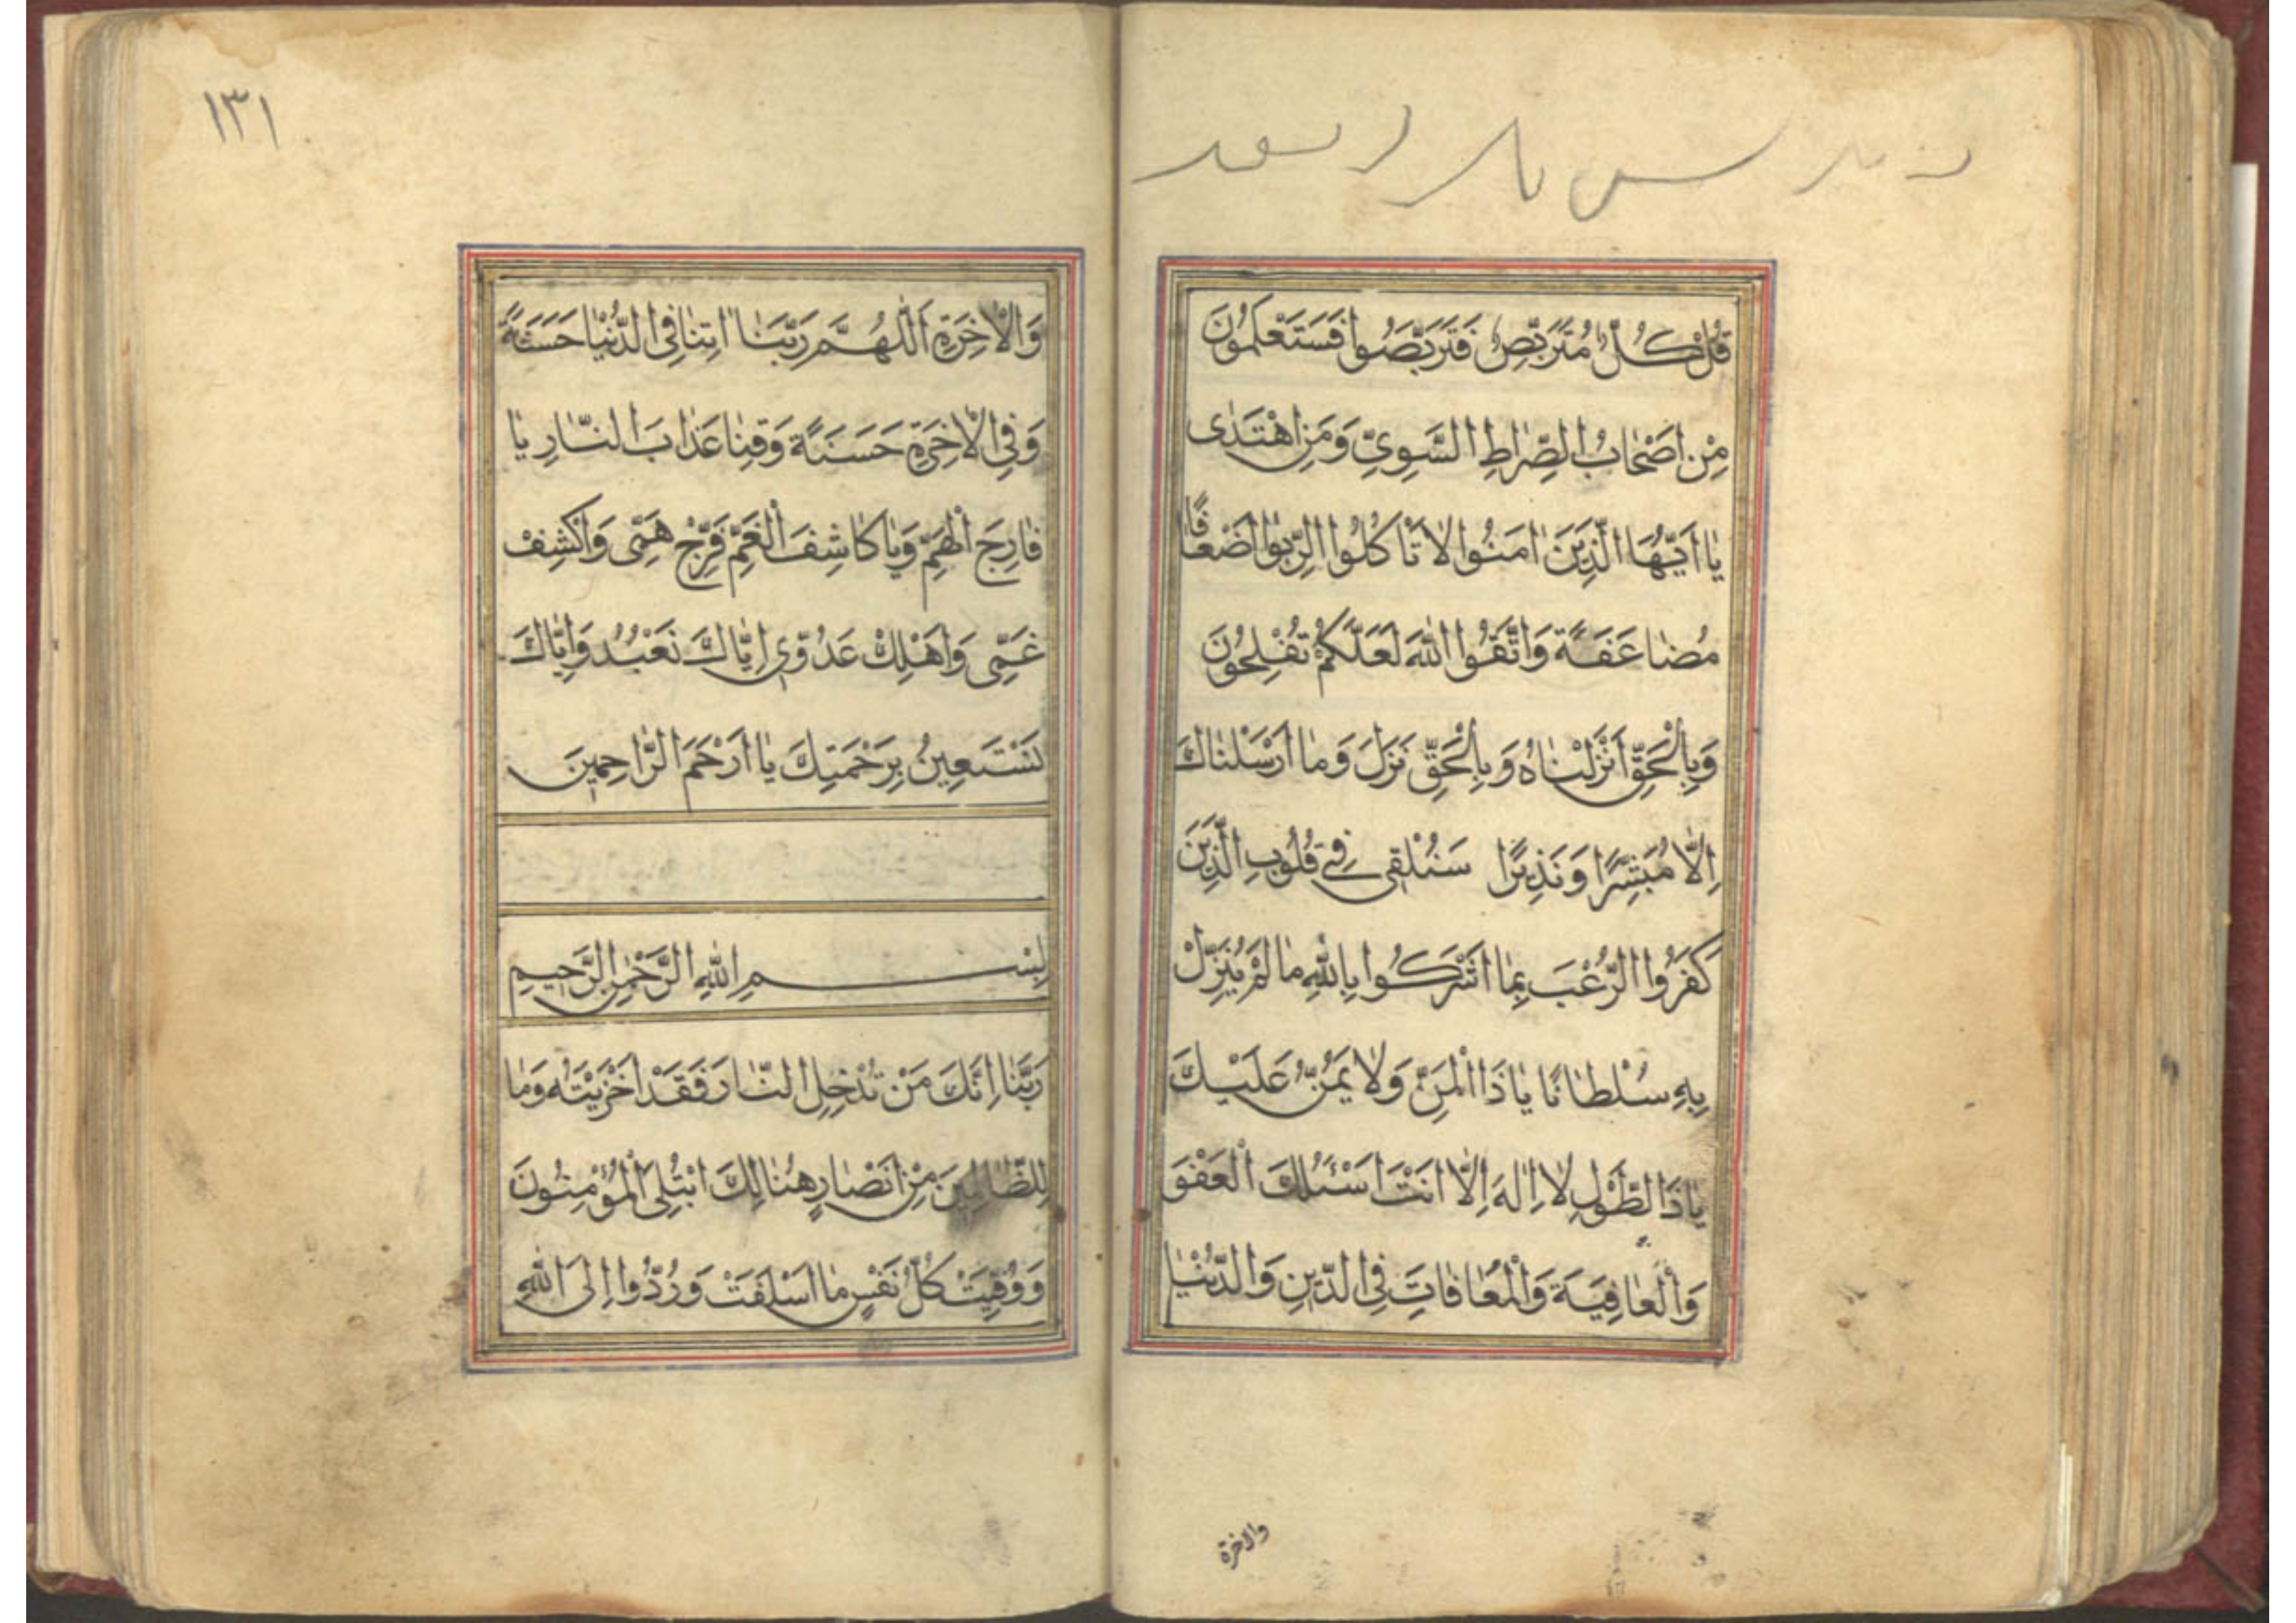 قُلْ كُلٌّ مُتَرَبِّصٌ فَتَرَبَّصُوا فَسَتَعْلَمُونَ
مِنْ اَصْحَابُ الصِّرَاطِ السَّوِيِّ وَمَنِ اهْتَدٰى
يَا اَيُّهَا الَّذِينَ اٰمَنُوا لَا تَاْكُلُوا الرِّبٰوا اَضْعَافًا
مُضَاعَفَةً وَاتَّقُوا اللّٰهَ لَعَلَّكُمْ تُفْلِحُونَ
وَبِالْحَقِّ اَنْزَلْنَاهُ وَبِالْحَقِّ نَزَلَ وَمَا اَرْسَلْنَاكَ
اِلَّا مُبَشِّرًا وَنَذِيرًا سَنُلْقِي فِي قُلُوبِ الَّذِينَ
كَفَرُوا الرُّعْبَ بِمَا اَشْرَكُوا بِاللّٰهِ مَا لَمْ يُنَزِّلْ
بِهِ سُلْطَانًا يَا ذَا الْمَنِّ وَلَا يَمُنُّ عَلَيْكَ
يَا ذَا الطَّوْلِ لَا اِلٰهَ اِلَّا اَنْتَ اَسْئَلُكَ الْعَفْوَ
وَالْعَافِيَةَ وَالْمُعَافَاتِ فِي الدِّينِ وَالدُّنْيَا
والاخرة
١٣١
وَالْاٰخِرَةِ اَللّٰهُمَّ رَبَّنَا اٰتِنَا فِي الدُّنْيَا حَسَنَةً
وَفِي الْاٰخِرَةِ حَسَنَةً وَقِنَا عَذَابَ النَّارِ يَا
فَارِجَ الْهَمِّ وَيَا كَاشِفَ الْغَمِّ فَرِّجْ هَمِّى وَاكْشِفْ
غَمِّى وَاَهْلِكْ عَدُوِّى اِيَّاكَ نَعْبُدُ وَاِيَّاكَ
نَسْتَعِينُ بِرَحْمَتِكَ يَا اَرْحَمَ الرَّاحِمِينَ
بِسْمِ اللّٰهِ الرَّحْمٰنِ الرَّحِيمِ
رَبَّنَا اِنَّكَ مَنْ تُدْخِلِ النَّارَ فَقَدْ اَخْزَيْتَهُ وَمَا
لِلظَّالِمِينَ مِنْ اَنْصَارٍ هُنَالِكَ ابْتُلِيَ الْمُؤْمِنُونَ
وَوُفِّيَتْ كُلُّ نَفْسٍ مَا اَسْلَفَتْ وَرُدُّوا اِلَى اللّٰهِ